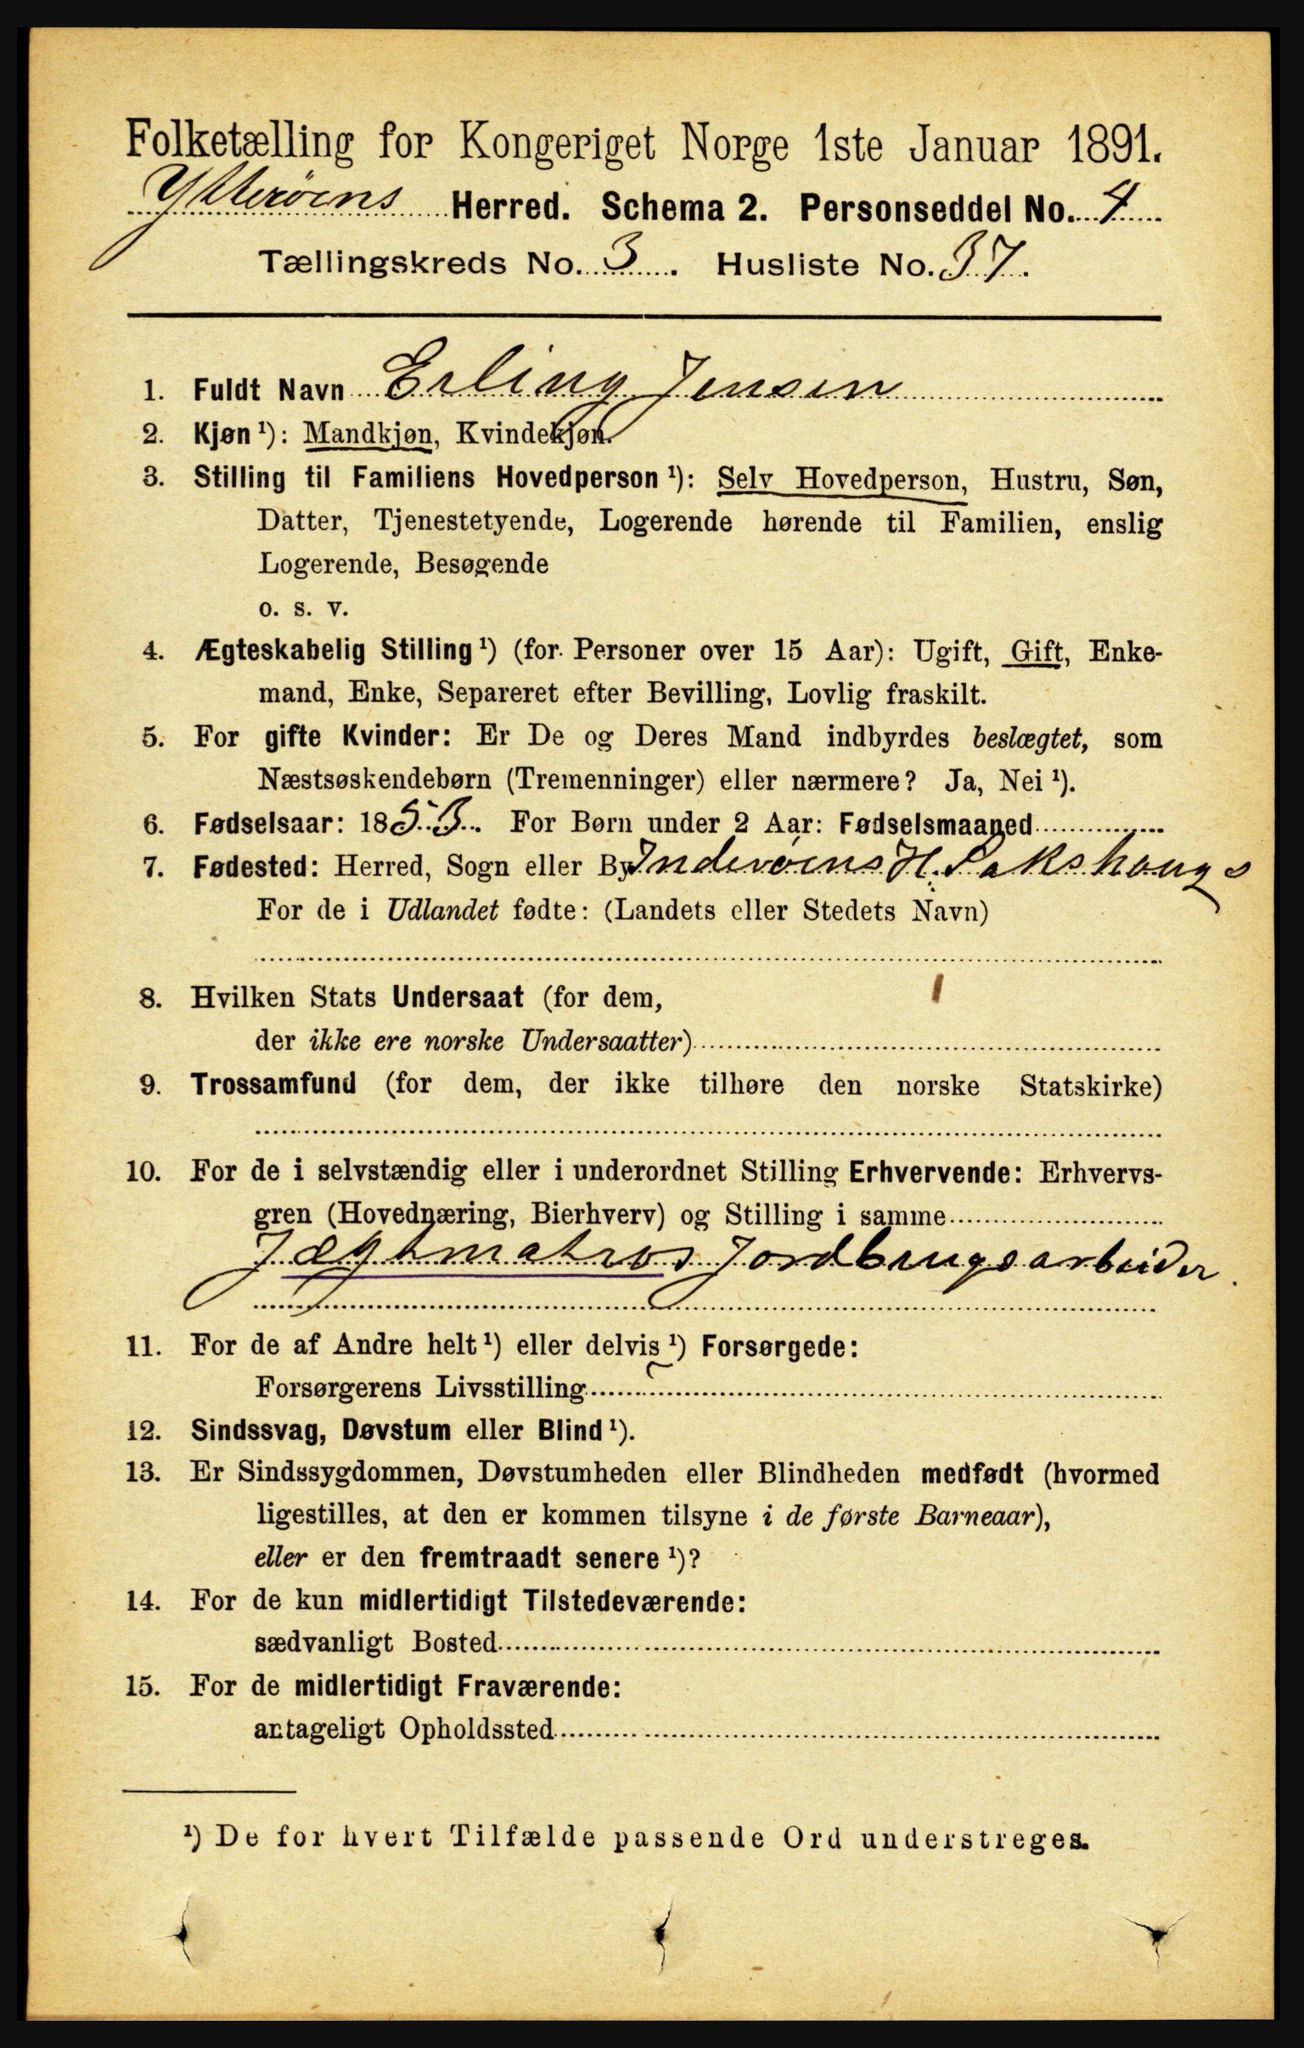 Folketælling for Kongeriget Norge 1ste Januar 1891.
Ytterøens Herred. Schema 2. Personseddel No. 4
Tællingskreds No. 3. Husliste No. 37.
1. Fuldt Navn Erling Jensen
2. Kjøn ¹): Mandkjøn, Kvindekjøn.
3. Stilling til Familiens Hovedperson ¹): Selv Hovedperson, Hustru, Søn,
Datter, Tjenestetyende, Logerende hørende til Familien, enslig
Logerende, Besøgende
o. s. v.
4. Ægteskabelig Stilling ¹) (for Personer over 15 Aar): Ugift, Gift, Enke-
mand, Enke, Separeret efter Bevilling, Lovlig fraskilt.
5. For gifte Kvinder: Er De og Deres Mand indbyrdes beslægtet, som
Næstsøskendebørn (Tremenninger) eller nærmere? Ja, Nei ¹).
6. Fødselsaar: 1853. For Børn under 2 Aar: Fødselsmaaned
7. Fødested: Herred, Sogn eller By Inderøens H. Sakshougs
For de i Udlandet fødte: (Landets eller Stedets Navn)
8. Hvilken Stats Undersaat (for dem,
der ikke ere norske Undersaatter)
9. Trossamfund (for dem, der ikke tilhøre den norske Statskirke)
10. For de i selvstændig eller i underordnet Stilling Erhvervende: Erhvervs-
gren (Hovednæring, Bierhverv) og Stilling i samme
Jægtmatros Jordbrugsarbeider.
11. For de af Andre helt ¹) eller delvis ¹) Forsørgede:
Forsørgerens Livsstilling
12. Sindssvag, Døvstum eller Blind ¹).
13. Er Sindssygdommen, Døvstumheden eller Blindheden medfødt (hvormed
ligestilles, at den er kommen tilsyne i de første Barneaar),
eller er den fremtraadt senere ¹)?
14. For de kun midlertidigt Tilstedeværende:
sædvanligt Bosted
15. For de midlertidigt Fraværende:
antageligt Opholdssted
¹) De for hvert Tilfælde passende Ord understreges.